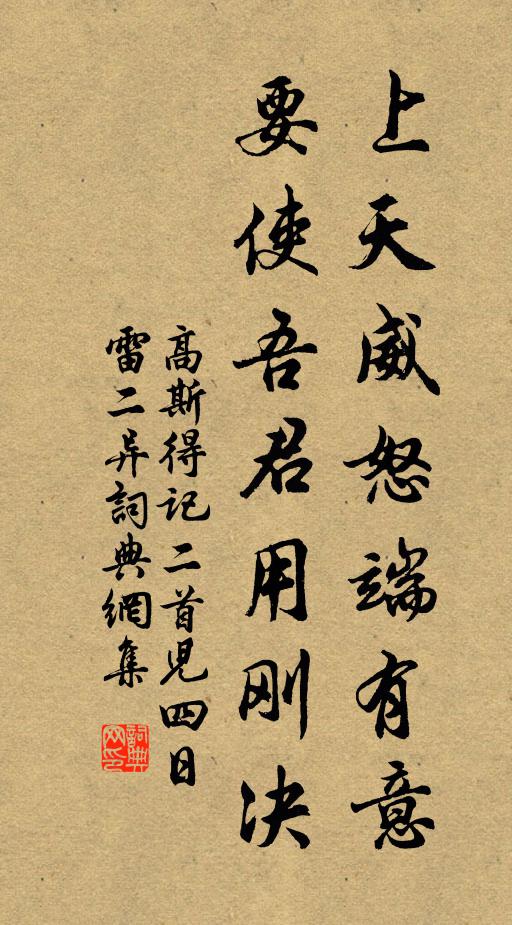 上天威怒端有意
要使吾君用刚决
高斯得记二首儿四日
雷二异詞典網集
詞典
网印